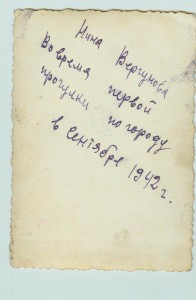 Нина Вергунова
Во время первой
прогулки по городу
в Сентябре 1942 г.